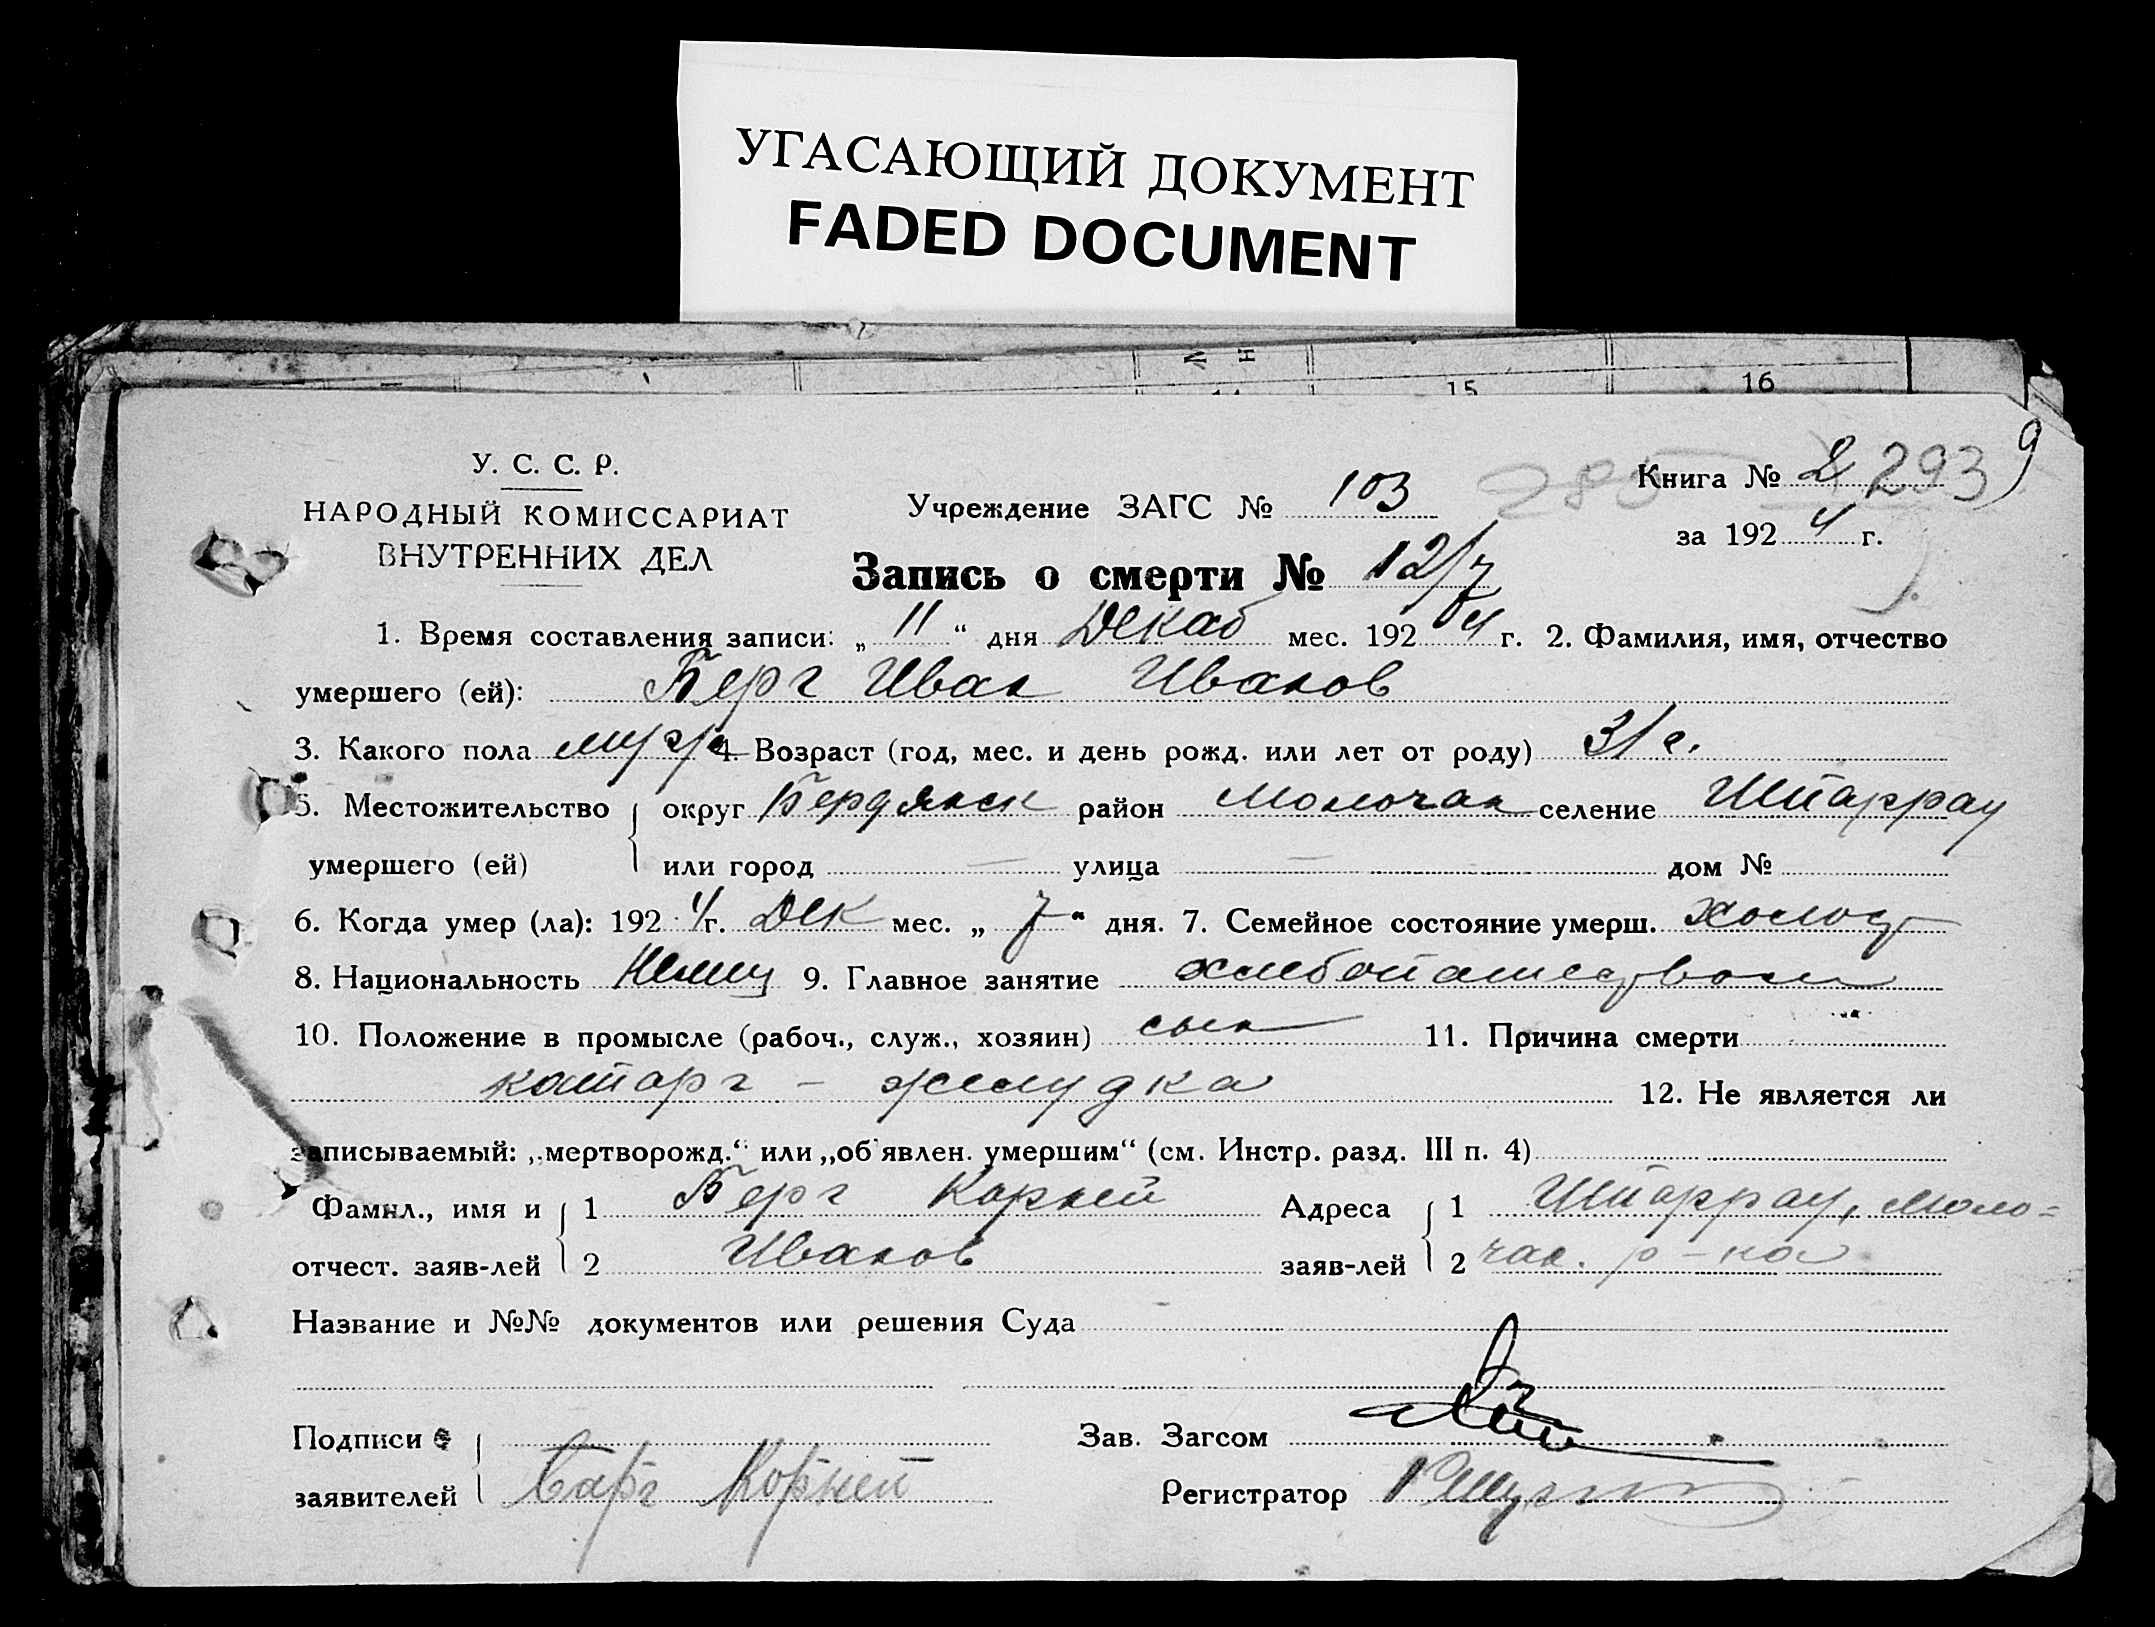 УГАСАЮЩИЙ ДОКУМЕНТ
FADED DOCUMENT
15 16
У. С. С. Р.
НАРОДНЫЙ КОМИССАРИАТ
ВНУТРЕННИХ ДЕЛ
Учреждение ЗАГС № 103 285
Книга № 2 293 9
за 1924 г.
Запись о смерти № 12/7
1. Время составления записи: „11“ дня Декаб мес. 1924 г. 2. Фамилия, имя, отчество
умершего (ей): Берг Иван Иванов
3. Какого пола муж 4. Возраст (год, мес. и день рожд. или лет от роду) 31 г.
5. Местожительство округ Бердянск район Молочан селение Шпаррау
умершего (ей) или город — улица — дом №
6. Когда умер (ла): 1924 г. Дек мес. „7“ дня. 7. Семейное состояние умерш. холост
8. Национальность Немец 9. Главное занятие хлебопашество
10. Положение в промысле (рабоч., служ., хозяин) сын 11. Причина смерти
катарг - желудка 12. Не является ли
записываемый: „мертворожд.“ или „об'явлен. умершим“ (см. Инстр. разд. III п. 4)
Фамил., имя и 1 Берг Корней Адреса 1 Шпаррау, Моло=
отчест. заяв-лей 2 Иванов заяв-лей 2 чан. р-на
Название и №№ документов или решения Суда
Подписи Зав. Загсом
заявителей Берг Корней Регистратор